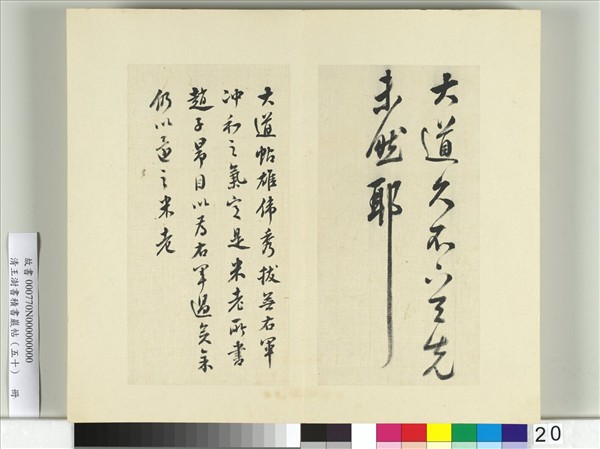 大道久不下与先
未然耶
大道帖雄偉秀拔無右軍
冲和之氣定是米老所書
趙子昂目以為右軍過矣余
仍以還之米老
故書 000770N000000000
清王澍書積書巖帖（五十） 冊
20